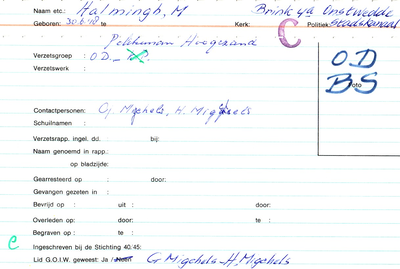 Naam etc.: Halmingh, M Brink 4a Onstwedde
Geboren: 30.6.18 te Kerk: C Politiek: Stadskanaal
Pelikaan Hoogezand
Verzetsgroep : O.D. -
Verzetswerk :
O D
BS
foto
Contactpersonen: G. Migchels, H. Migchels
Schuilnamen :
Verzetsrapp. ingel. dd. bij:
Naam genoemd in rapp.:
op bladzijde:
Gearresteerd op : door:
Gevangen gezeten in :
Bevrijd op : uit : door:
Overleden op: door: te :
Begraven op : te :
e Ingeschreven bij de Stichting 40/45:
Lid G.O.I.W. geweest: Ja / Neen G Migchels - H. Migchels